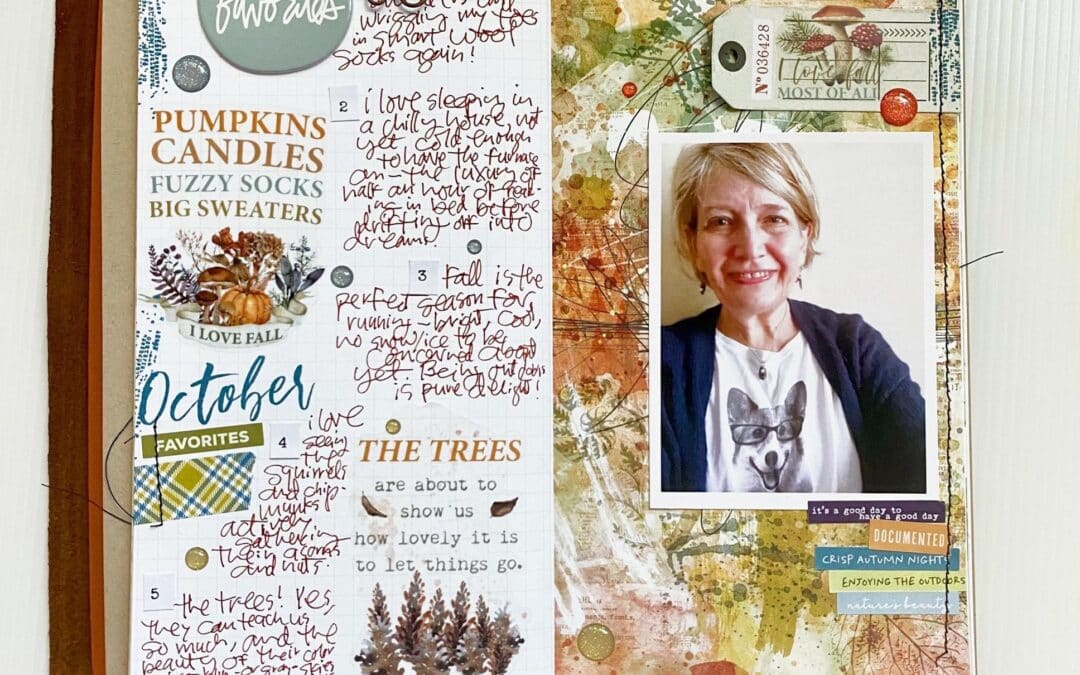 favorites
wriggling my toes
in smart wool
socks again!
PUMPKINS
CANDLES
FUZZY SOCKS
BIG SWEATERS
I LOVE FALL
October
FAVORITES
2
i love sleeping in
a chilly house, not
yet cold enough
to have the furnace
on - the luxury of
half an hour of read-
ing in bed before
drifting off into
dreams.
3
Fall is the
perfect season for
running - bright, cool,
no snow/ice to be
concerned about
yet. Being outdoors
is pure delight!
4
i love
seeing
the
squirrels
and chip-
munks
actively
gathering
their acorns
and nuts.
THE TREES
are about to
show us
how lovely it is
to let things go.
5
the trees! Yes,
they can teach us
so much, and the
beauty of their color
Nº 036428
I love fall
MOST OF ALL
it's a good day to
have a good day
DOCUMENTED
CRISP AUTUMN NIGHTS
ENJOYING THE OUTDOORS
nature's beauty